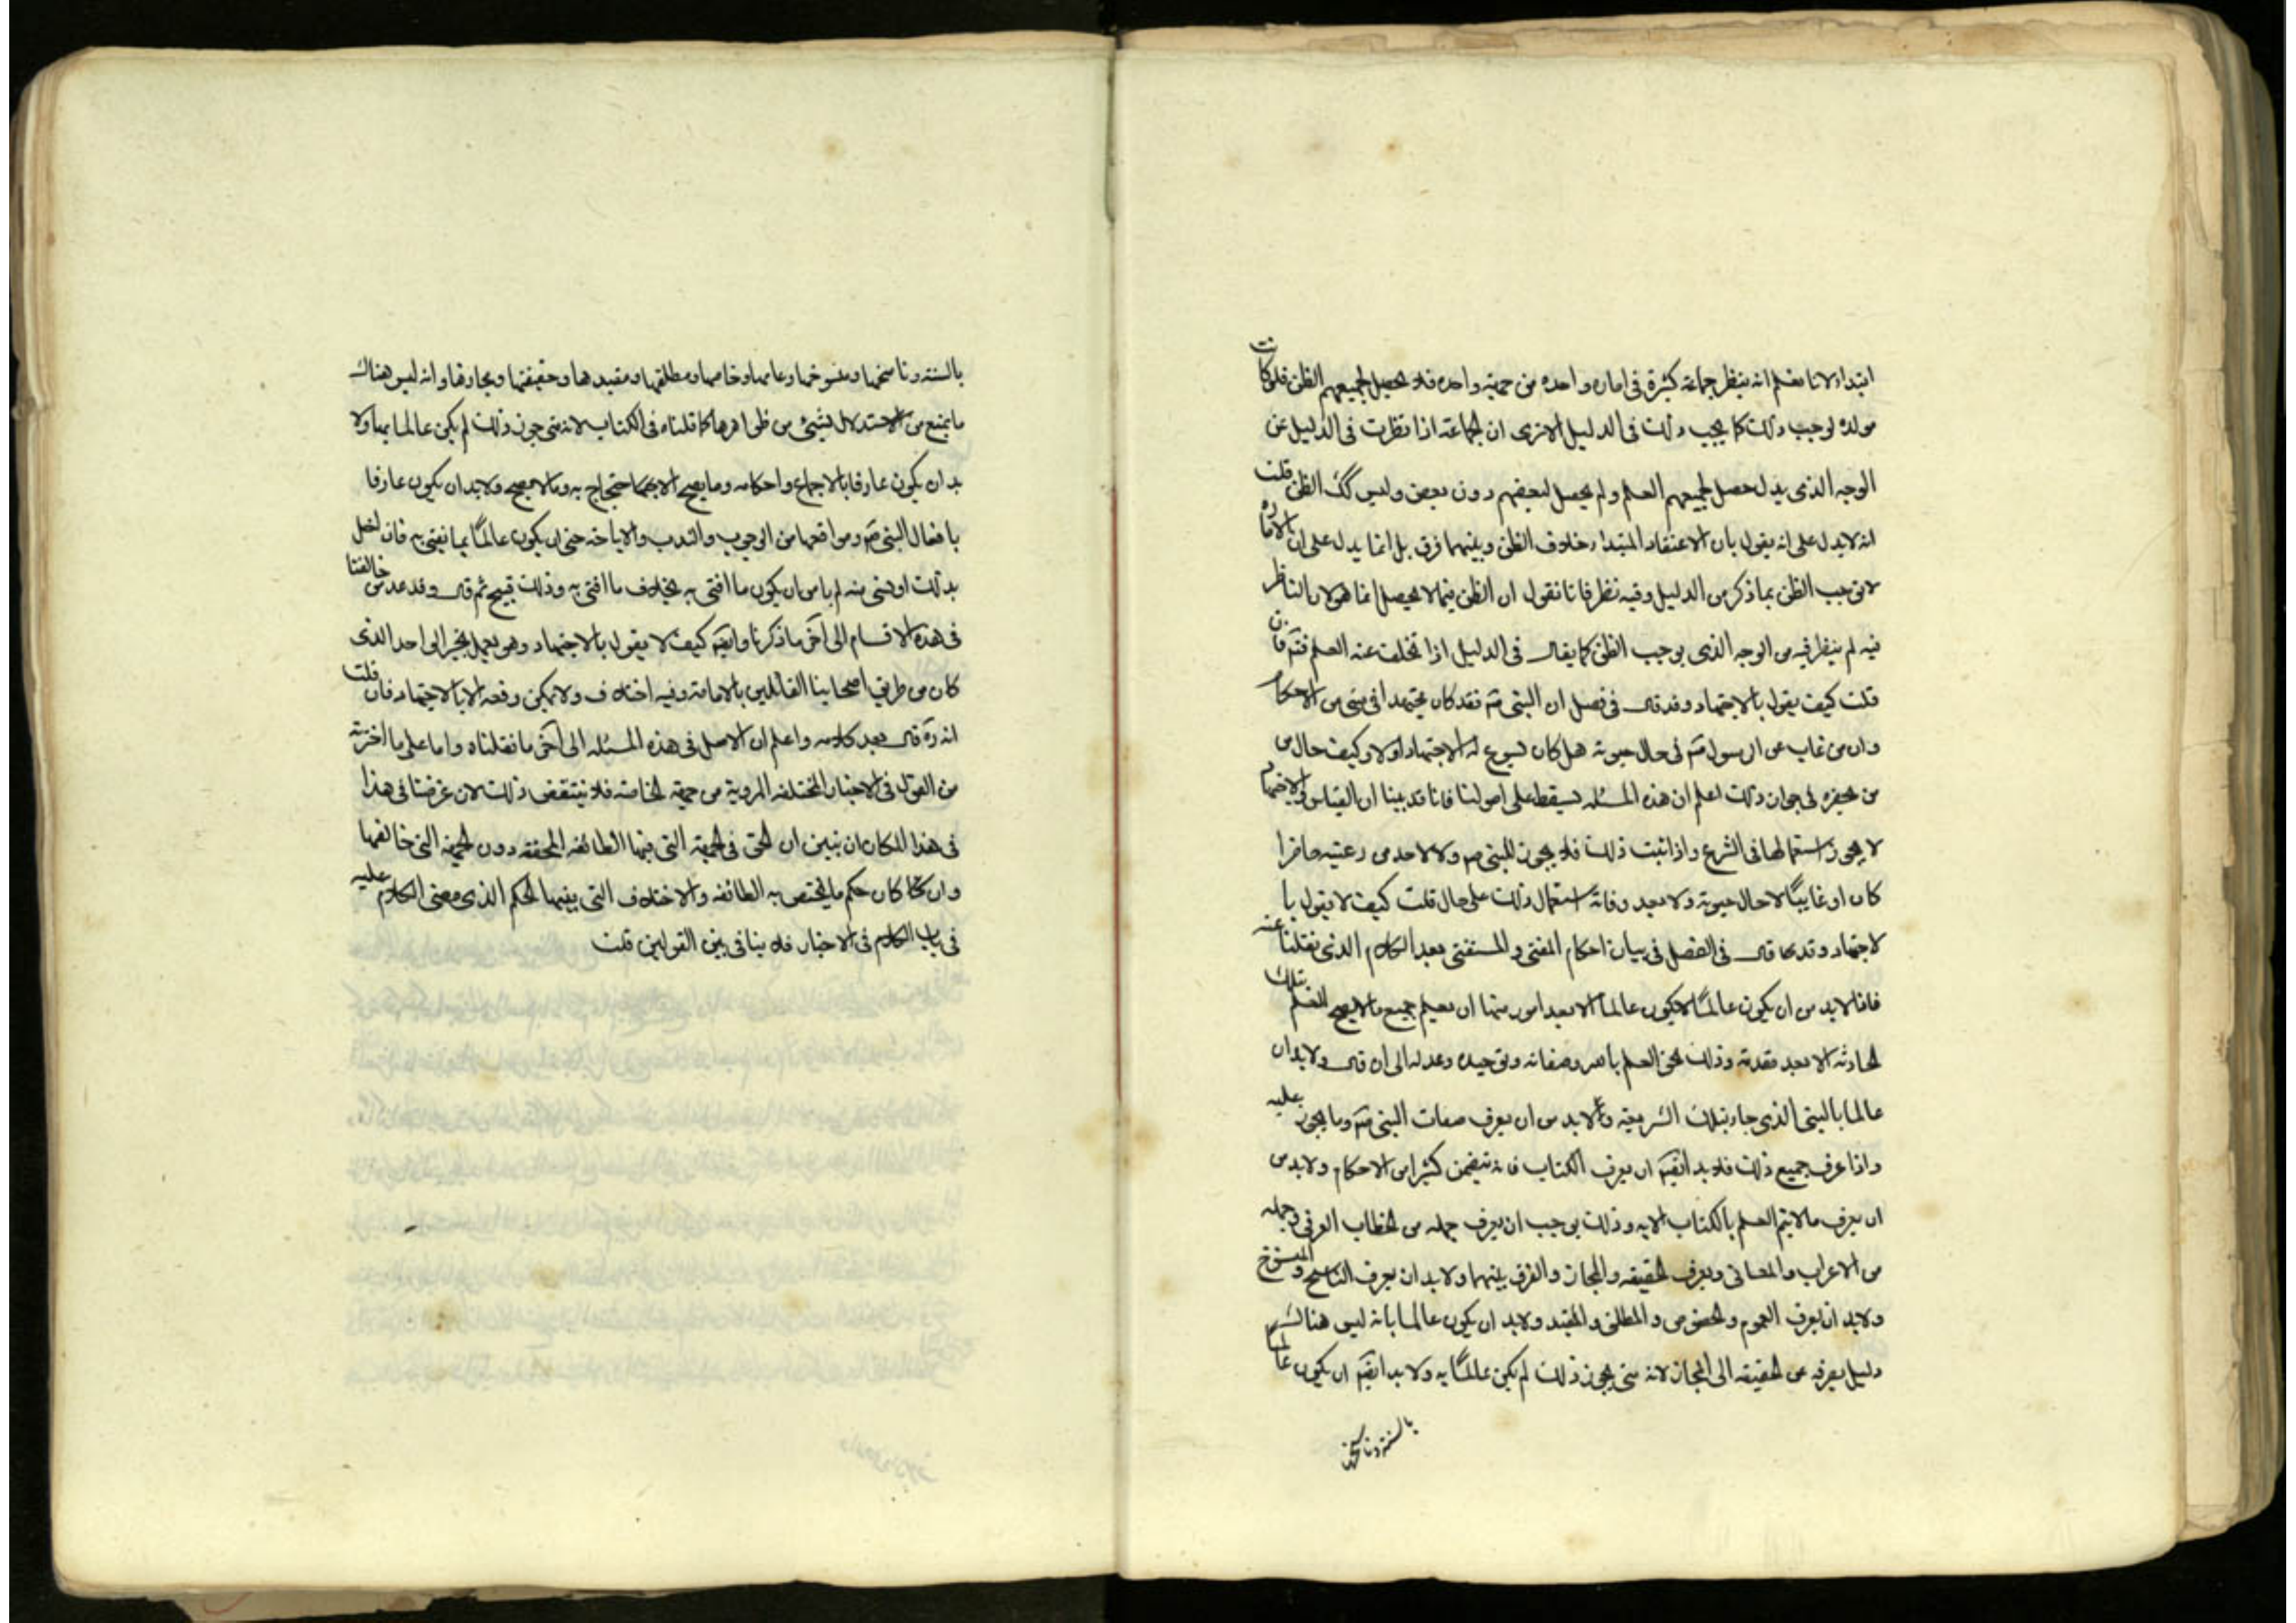 ابتداء لانا نعلم انه ينظر جماعة كثيرة في امارة واحدة من جهة واحدة فلا يحصل لجميعهم الظن فلو كانت
مولدة لوجب ذلك كما يجب ذلك في الدليل الا ترى ان الجماعة اذا نظرت في الدليل عن
الوجه الذي يدل حصل لجميعهم العلم ولم يحصل لبعضهم دون بعض وليس كك الظن قلت
انه لا يدل على انه يقول بان الاعتقاد المبتداء خلاف الظن وبينهما فرق بل انما يدل على ان الامارة
لا توجب الظن بما ذكر من الدليل وفيه نظر فانا نقول ان الظن فيما لا يحصل انما هو لان الناظر
فيه لم ينظر فيه من الوجه الذي يوجب الظن كما يقال في الدليل اذا تخلف عنه العلم فتم فان
قلت كيف يقول بالاجتهاد وقد قال في فصل ان النبي ص فقد كان مجتهدا في شئ من الاحكام
وان من غاب عن الرسول ص في حال حيوته هل كان يسوغ له الاجتهاد او لا وكيف حال من
من بحضرة في جواز ذلك اعلم ان هذه المسئلة تسقط على اصولنا فانا قد بينا ان القياس والاجتهاد
لا يجوز استعمالها في الشرع واذا ثبت ذلك فلا يجوز للنبي ص ولا لاحد من رعيته حاضرا
كان او غايبًا لا حال حيوته ولا بعد وفاته استعمال ذلك على حال قلت كيف لا يقول با
لاجتهاد وقد قال في الفصل في بيان احكام المفتي والمستفتي بعد الكلام الذي نقلنا عنه
فانا لا بد من ان يكون عالمًا لا يكون عالما الا بعد امور منها ان يعلم جميع ما لا يصح العلم بتلك
الحادثة الا بعد تقدمه وذلك نحو العلم بالله وصفاته وتوحيده وعدله الى ان قال ولا بد ان
عالما بالنبي الذي جاء بتلك الشريعة ولا بد من ان يعرف صفات النبي ص وما يجوز عليه
واذا عرف جميع ذلك فلا بد ايضا ان يعرف الكتاب فانه يتضمن كثيرا من الاحكام ولا بد من
ان يعرف ما لا يتم العلم بالكتاب الا به وذلك يوجب ان يعرف جمله من الخطاب العربي وجمله
من الاعراب والمعاني ويعرف الحقيقه والمجاز والفرق بينهما ولا بد ان يعرف الناسخ والمنسوخ
ولا بد ان يعرف العموم والخصوص والمطلق والمقيد ولا بد ان يكون عالما بانه ليس هناك
دليل يصرفه عن الحقيقه الى المجاز لانه متى يجوز ذلك لم يكن عالمًا به ولا بد ايضا ان يكون عالما
بالسنة وناسخها
بالسنة وناسخها ومنسوخها وعامها وخاصها ومطلقها ومقيدها وحقيقتها ومجازها وانه ليس هناك
ما يمنع من الاستدلال بشئ من ظواهرها كما قلناه في الكتاب لانه متى جوز ذلك لم يكن عالما بها ولا
بد ان يكون عارفا بالاجماع واحكامه وما يصح الاحتجاج به وما لا يصح ولا بد ان يكون عارفا
بافعال النبي ص ومواقعها من الوجوب والندب والاباحة حتى ان يكون عالمًا بما يفتي به فان اخل
بذلك او بشئ منه لم يامن ان يكون ما افتى به بخلاف ما افتى به وذلك قبيح ثم قال وقد عد من خالفنا
في هذه الاقسام الى اخر ما ذكرنا وايضا كيف لا يقول بالاجتهاد وهو يعمل بخبر الواحد الذي
كان من طريق اصحابنا القائلين بالامامة وفيه اختلاف ولا يمكن رفعه الا بالاجتهاد فان قلت
انه ره قال بعد كلامه واعلم ان الاصل في هذه المسئلة الى اخر ما نقلناه واما على ما اخترته
من القول في الاخبار المختلفة المروية من جهة الخاصة فلا ينتقض ذلك لان غرضنا في هذا
في هذا المكان ان نبين ان الحق في الجهة التي فيها الطائفه المحقه دون الجهة التي خالفها
وان كان حكم ما يختص به الطائفه والاختلاف التي بينها الحكم الذي مضى الكلام عليه
في باب الكلام في الاخبار فلا ينافي بين القولين قلت